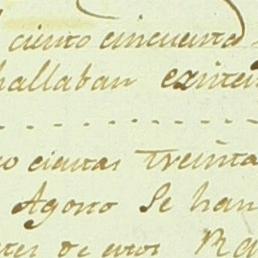 ciento cincuenta
hallaban existen
cientas treinta
Agosto Se han
de estos Ra